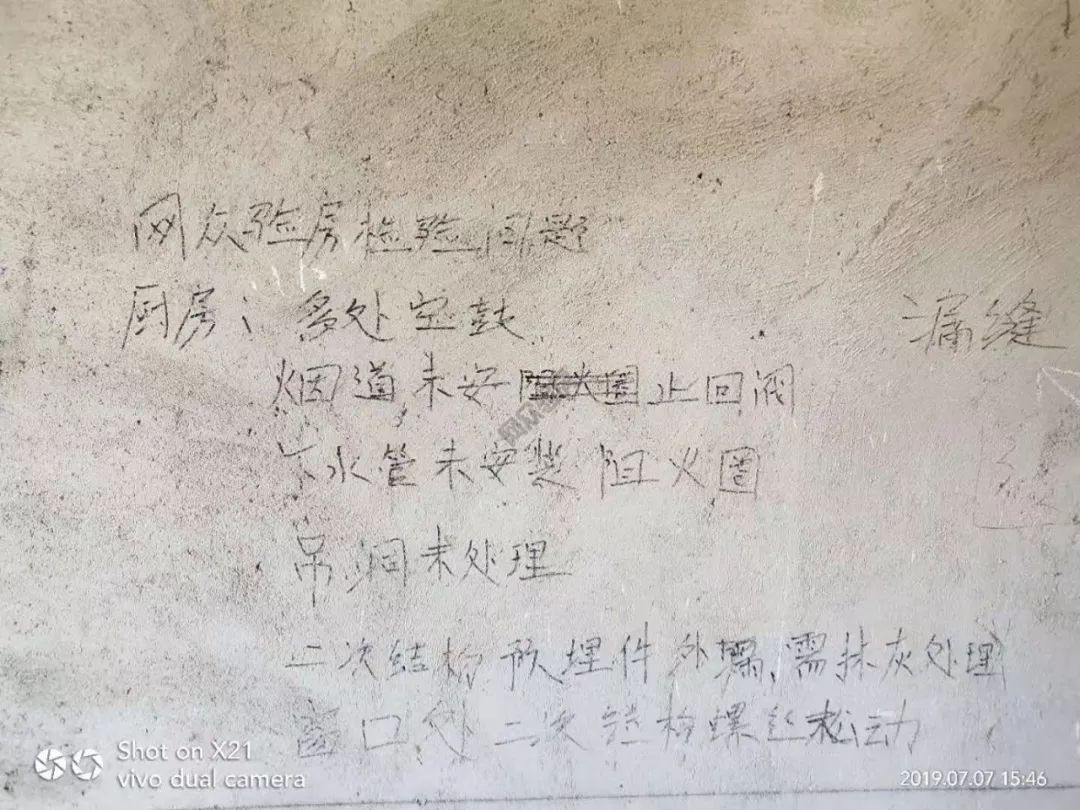 网众验房检验问题
厨房：多处空鼓 漏缝
烟道未安止回阀
下水管未安装阻火圈
吊洞未处理
二次结构预埋件外露，需抹灰处理
窗口处二次结构螺丝松动
Shot on X21
vivo dual camera
2019.07.07 15:46